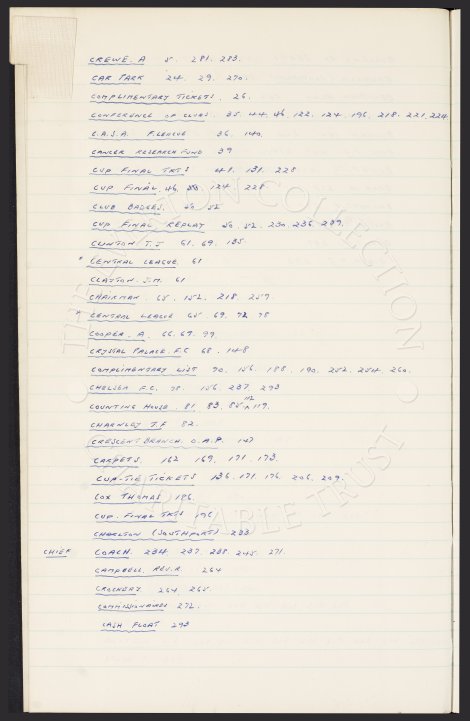 CREWE. A 5. 281. 283.
CAR PARK 24. 29. 270.
COMPLIMENTARY TICKETS. 26.
CONFERENCE OF CLUBS. 35. 44. 46. 122. 124. 196. 218. 221. 224
C.A.S.A. F. LEAGUE 36. 140.
CANCER RESEARCH FUND 39
CUP FINAL TKTS 41. 131. 228
CUP FINAL 46. 124. 228
CLUB BADGES. 50. 52
CUP FINAL REPLAY 50. 52. 230. 236. 239.
CLINTON T.J 61. 69. 135.
* CENTRAL LEAGUE. 61
CLAYTON. J.M. 61
CHAIRMAN. 65. 152. 218. 257.
* CENTRAL LEAGUE 65. 69. 72 78
COOPER. A. 66. 69. 99
CRYSTAL PALACE. F.C 68. 148
COMPLIMENTARY LIST 70. 156. 188. 190. 252. 254. 260.
CHELSEA F.C. 78. 156 237. 293
COUNTING HOUSE. 81. 83. 85. 112 119.
CHARNLEY T.F 82.
CRESCENT BRANCH. O.A.P. 147
CARPETS. 162 169. 171. 173.
CUP-TIE TICKETS 136. 171. 176. 206. 209.
COX THOMAS 186.
CUP. FINAL TKTS 196
CHORLTON (SOUTHPORT) 233
CHIEF COACH. 234. 237. 238. 245. 271.
CAMPBELL. REV. R. 264
CROCKERY 264. 265.
COMMISSIONAIRES 272.
CASH FLOAT 293
THE COLLECTION
CHARITABLE TRUST